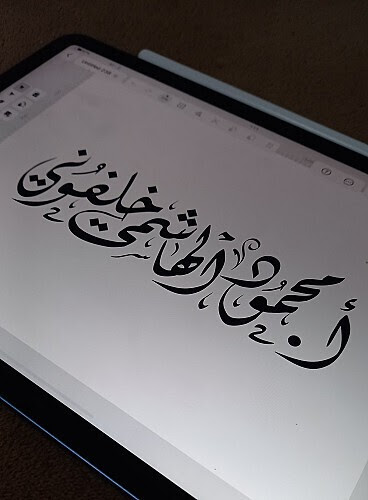 أ. محمود الهاشمي خلفوني